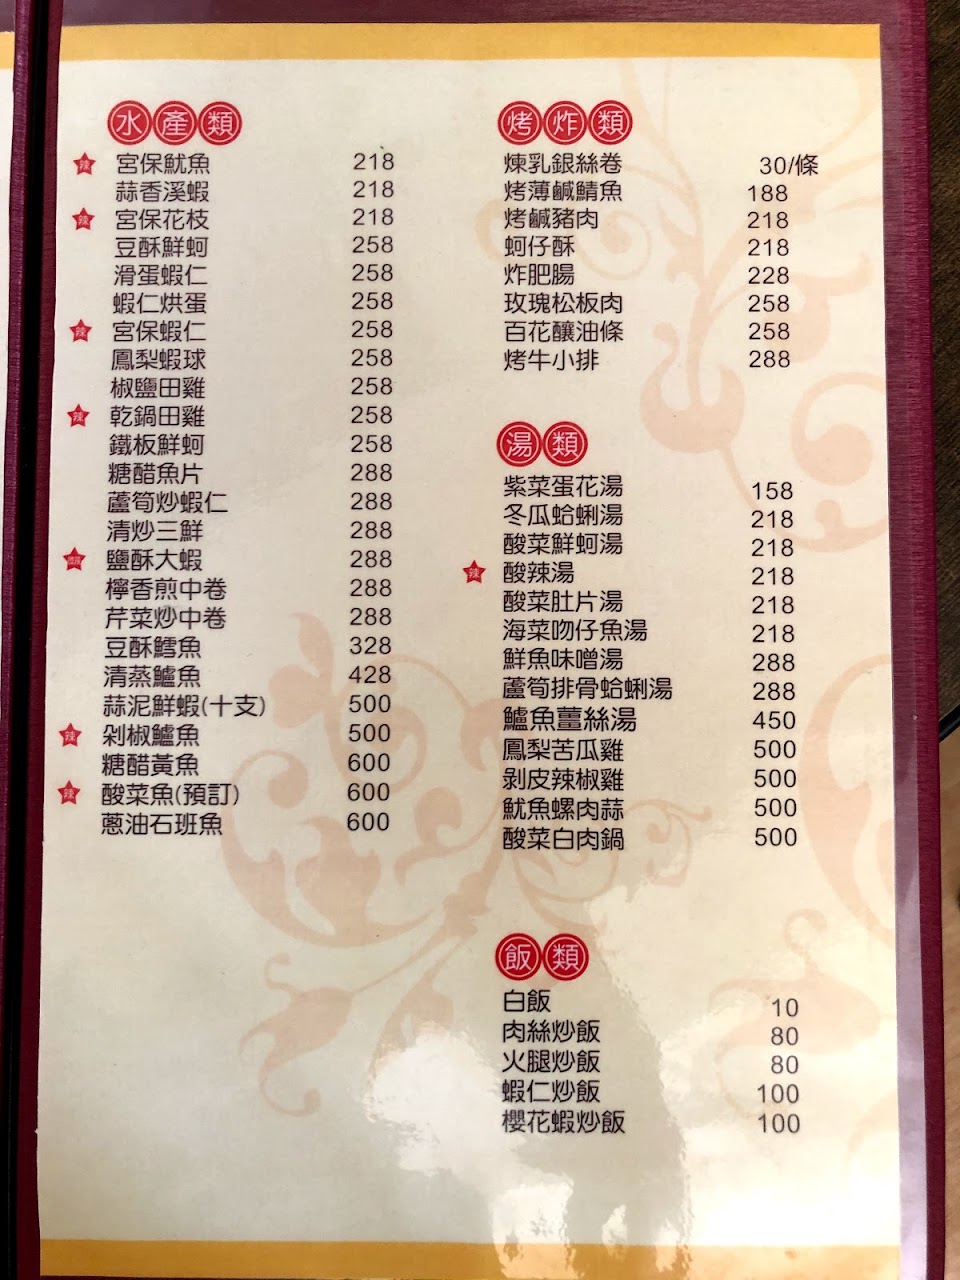 水產類
辣 宮保魷魚 218
蒜香溪蝦 218
辣 宮保花枝 218
豆酥鮮蚵 258
滑蛋蝦仁 258
蝦仁烘蛋 258
辣 宮保蝦仁 258
鳳梨蝦球 258
椒鹽田雞 258
辣 乾鍋田雞 258
鐵板鮮蚵 258
糖醋魚片 288
蘆筍炒蝦仁 288
清炒三鮮 288
鹽酥大蝦 288
檸香煎中卷 288
芹菜炒中卷 288
豆酥鱈魚 328
清蒸鱸魚 428
蒜泥鮮蝦(十支) 500
辣 剁椒鱸魚 500
糖醋黃魚 600
辣 酸菜魚(預訂) 600
蔥油石班魚 600
烤炸類
煉乳銀絲卷 30/條
烤薄鹹鯖魚 188
烤鹹豬肉 218
蚵仔酥 218
炸肥腸 228
玫瑰松板肉 258
百花釀油條 258
烤牛小排 288
湯類
紫菜蛋花湯 158
冬瓜蛤蜊湯 218
酸菜鮮蚵湯 218
辣 酸辣湯 218
酸菜肚片湯 218
海菜吻仔魚湯 218
鮮魚味噌湯 288
蘆筍排骨蛤蜊湯 288
鱸魚薑絲湯 450
鳳梨苦瓜雞 500
剝皮辣椒雞 500
魷魚螺肉蒜 500
酸菜白肉鍋 500
飯類
白飯 10
肉絲炒飯 80
火腿炒飯 80
蝦仁炒飯 100
櫻花蝦炒飯 100